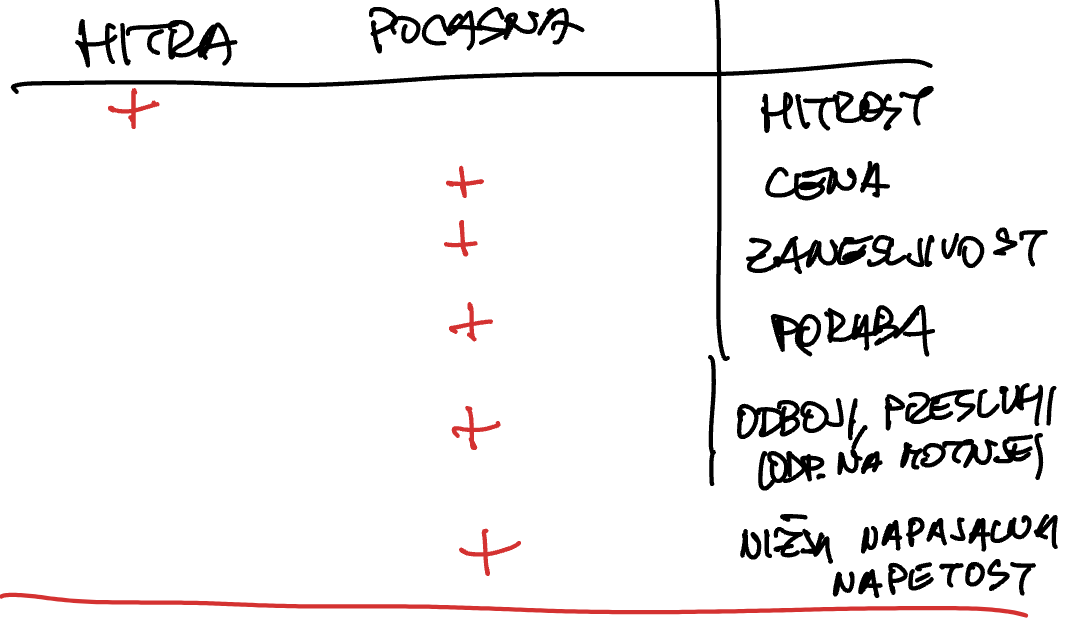 HITRA POČASNA
+ HITROST
+ CENA
+ ZANESLJIVOST
+ PORABA
+ ODBOJI, PRESLUHI
(ODP. NA MOTNJE)
+ NIŽJA NAPAJALNA
NAPETOST